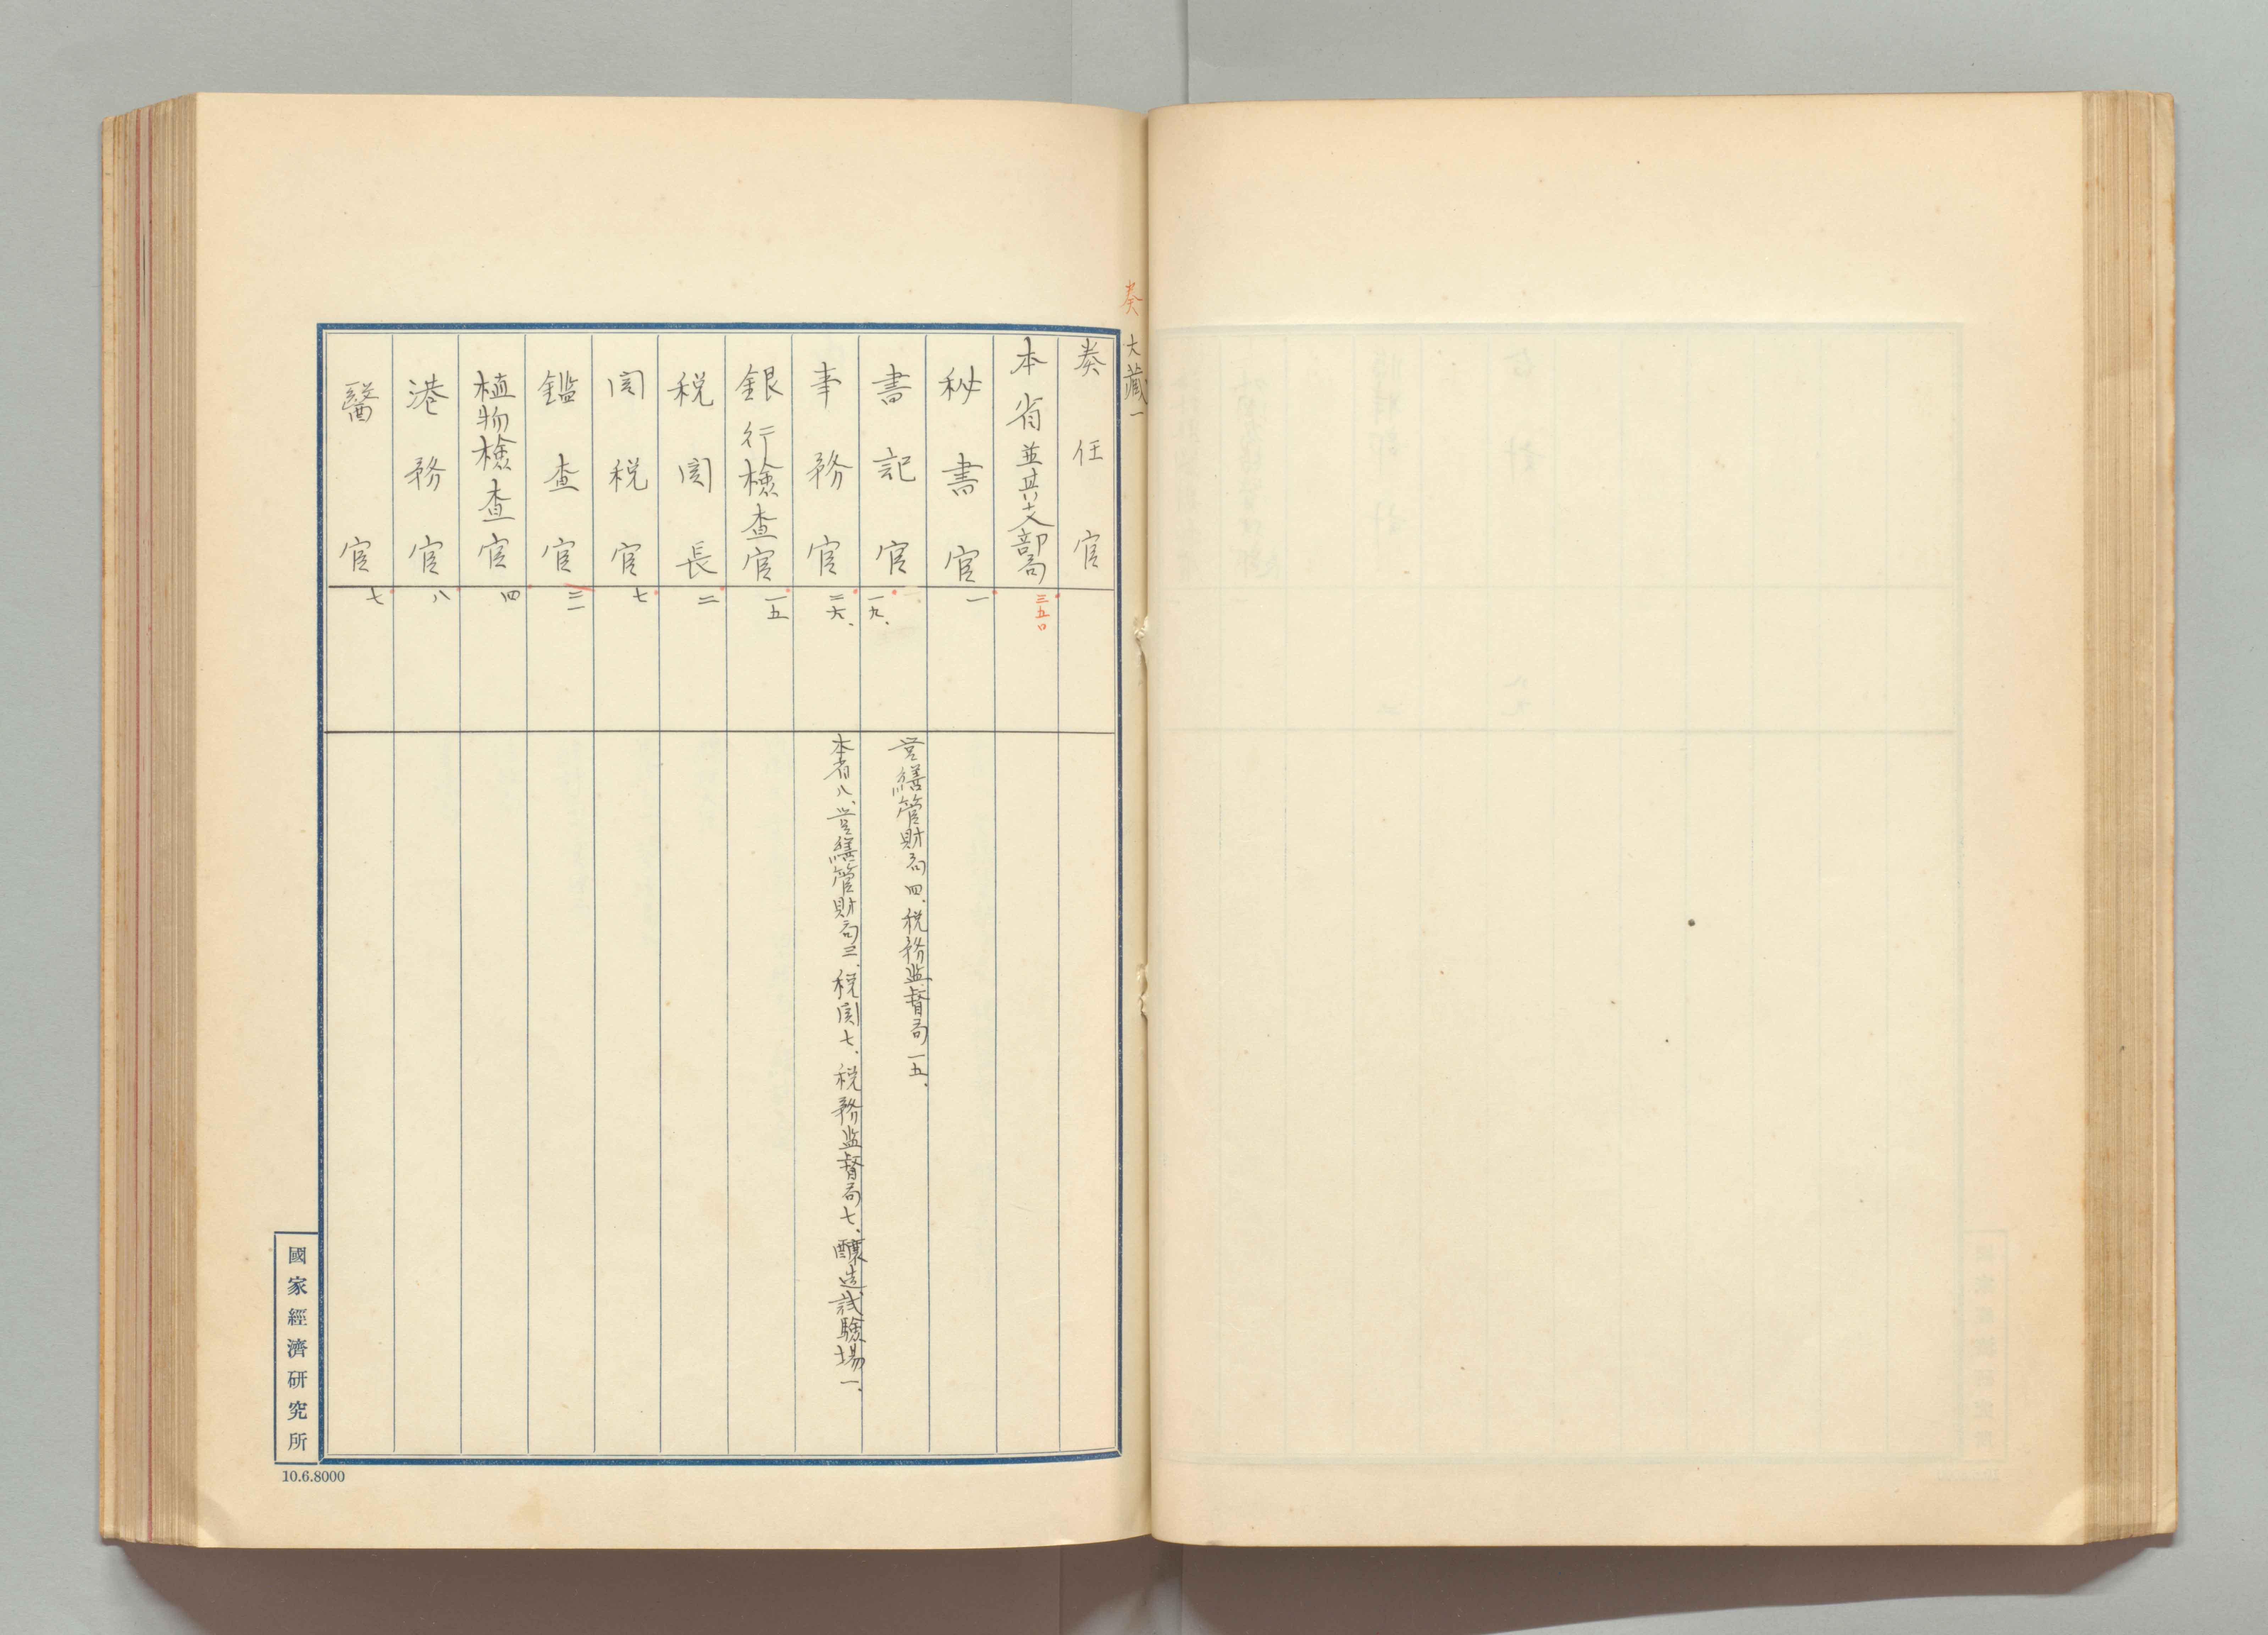 奏
大藏一
奏任官
本省並其ノ他ノ部局 三五〇
秘書官 一
書記官 一九、 営繕管財局四、税務監督局一五、
事務官 二六、 本省八、営繕管財局三、税関七、税務監督局七、醸造試験場一、
銀行検査官 一五
税関長 二
関税官 七
鑑査官 三一
植物検査官 四
港務官 八
醫官 七
國家經濟研究所
10.6.8000